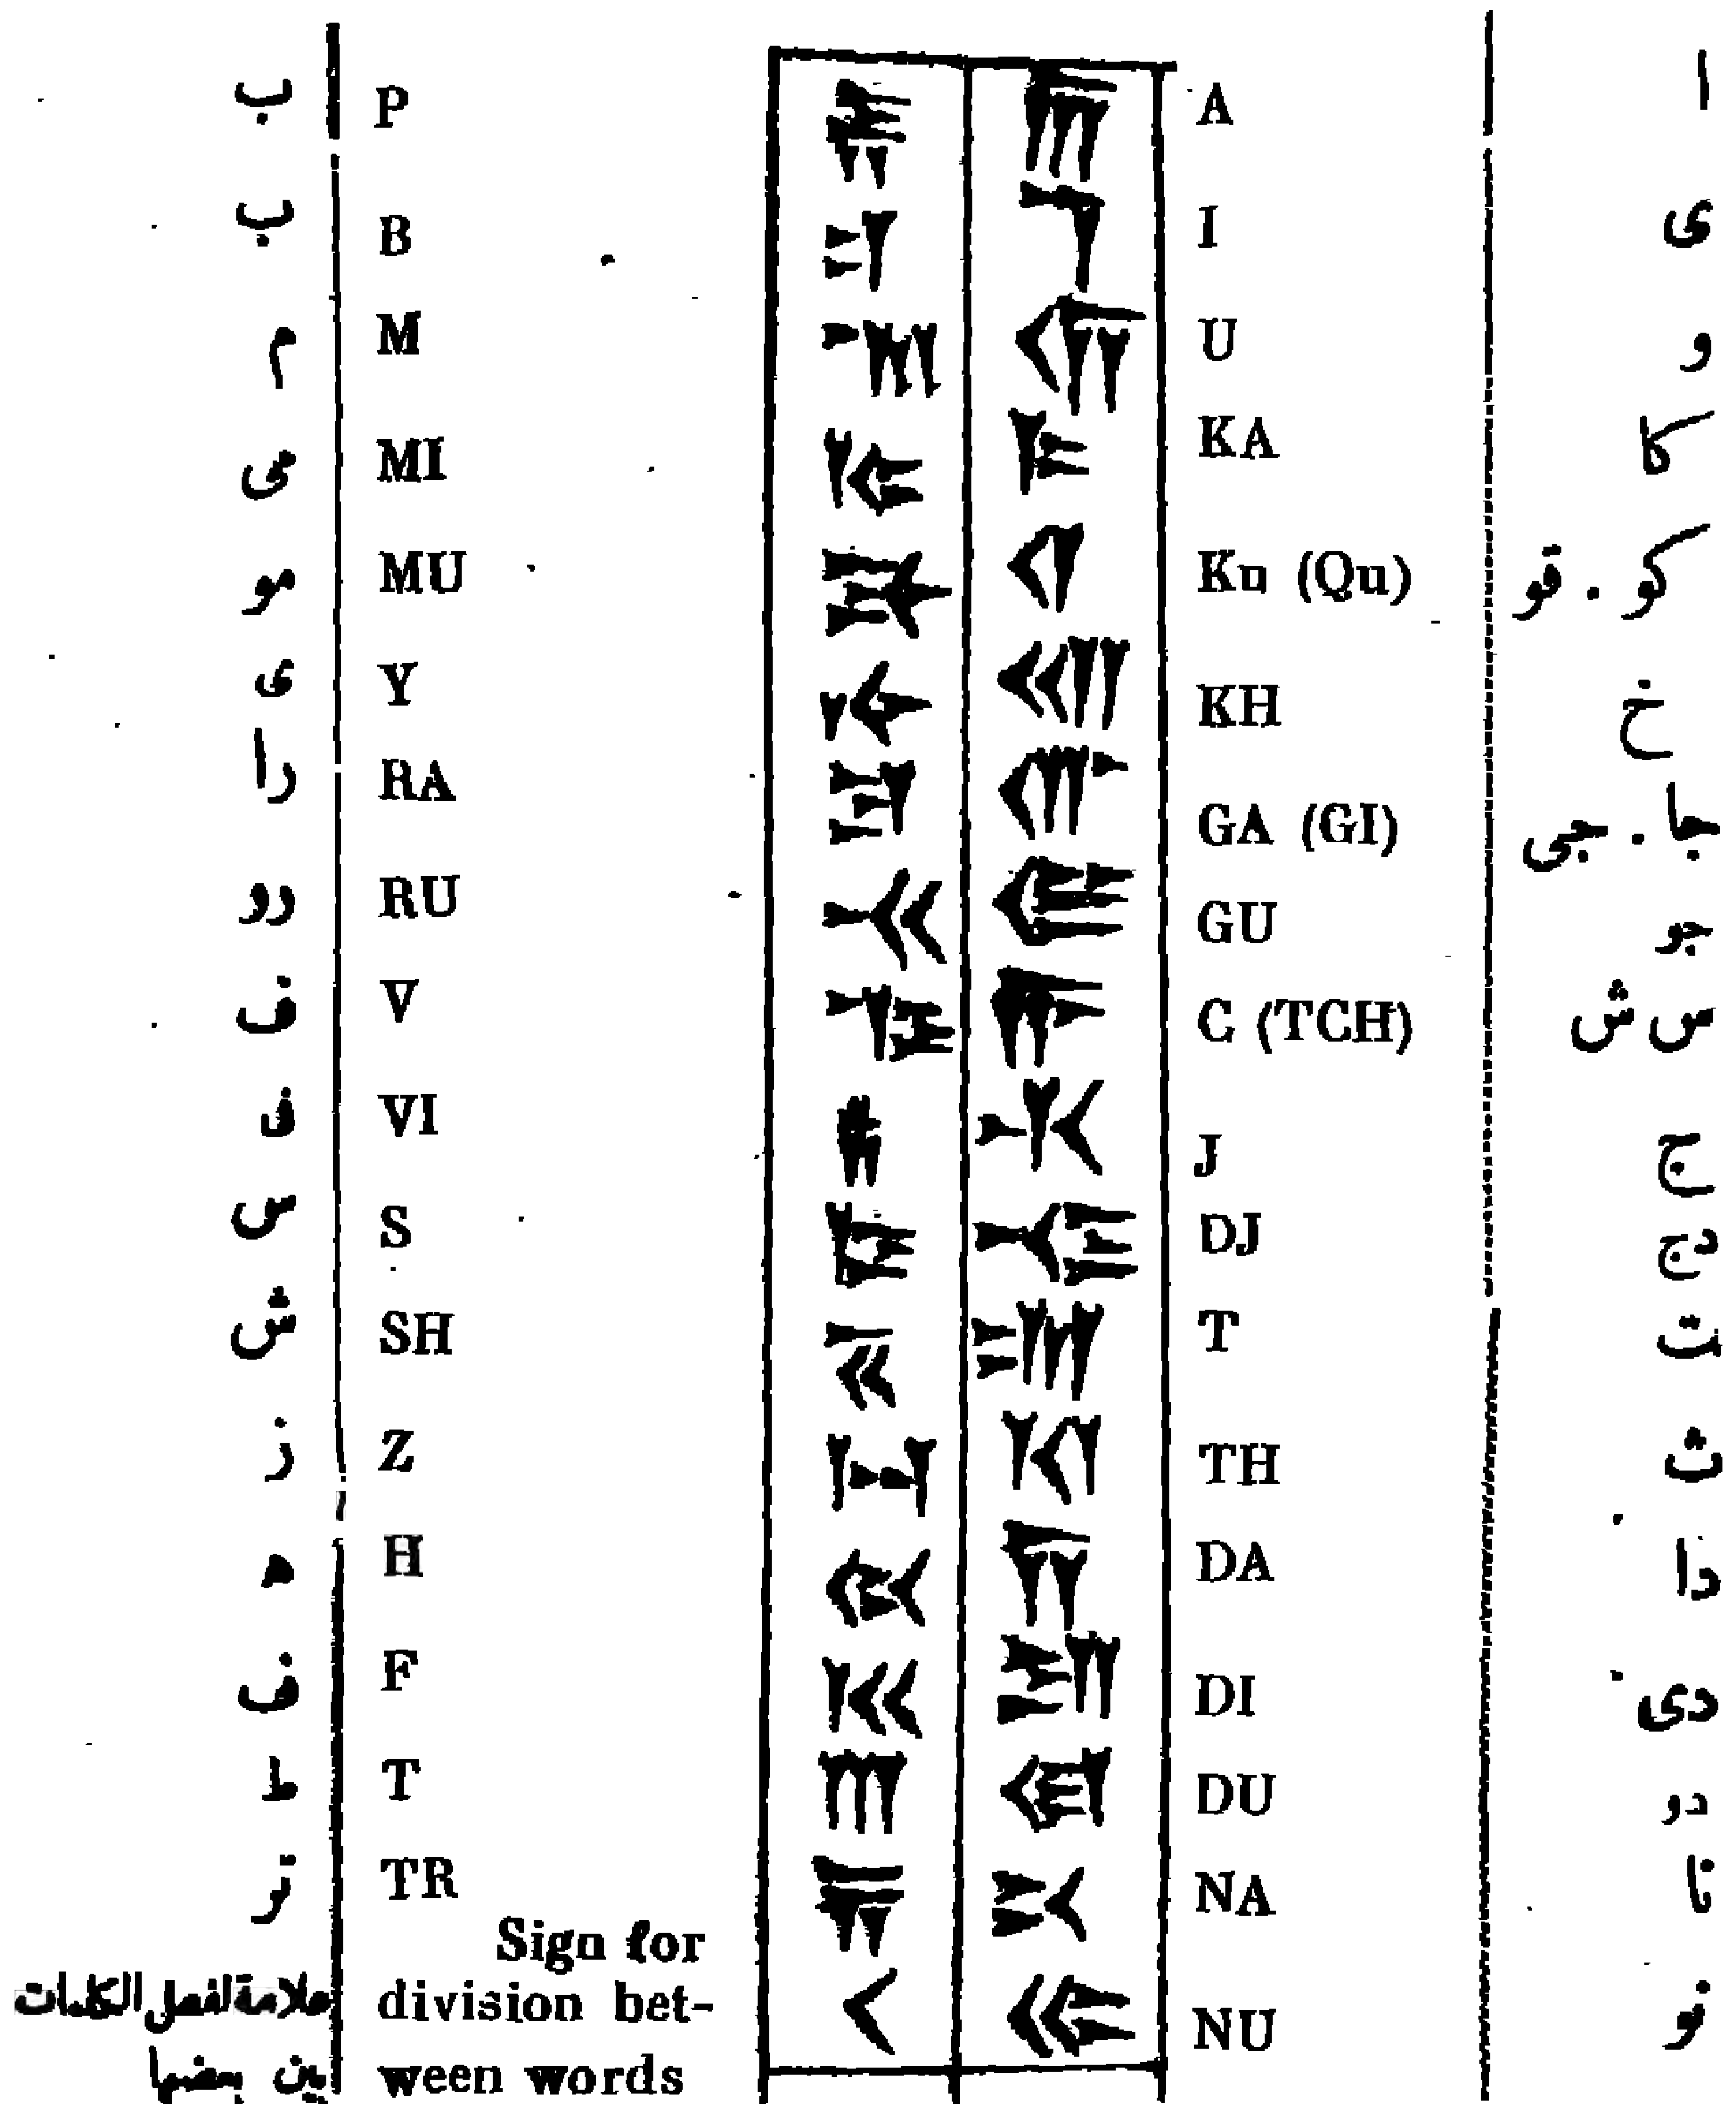 ب P 𐎱 𐎠 A ا
ب B 𐎲 𐎡 I ى
م M 𐎶 𐎢 U و
مى MI 𐎷 𐎣 KA كا
مو MU 𐎸 𐎤 Ku (Qu) كو . قو
ى Y 𐎹 𐎧 KH خ
را RA 𐎼 𐎥 GA (GI) جا . جى
رو RU 𐎽 𐎦 GU جو
ف V 𐎺 𐎨 C (TCH) س ش
ف VI 𐎻 𐎩 J ج
س S 𐎿 𐎪 DJ دج
ش SH 𐏁 𐎫 T ت
ز Z 𐏀 𐎰 TH ث
ه H 𐏃 𐎭 DA دا
ف F 𐎳 𐎮 DI دى
ط T 𐎬 𐎯 DU دو
تر TR 𐏂 𐎴 NA نا
علامة لفصل الكلمات
بين بعضها
Sign for
division bet-
ween words
𐏐 𐎵 NU نو